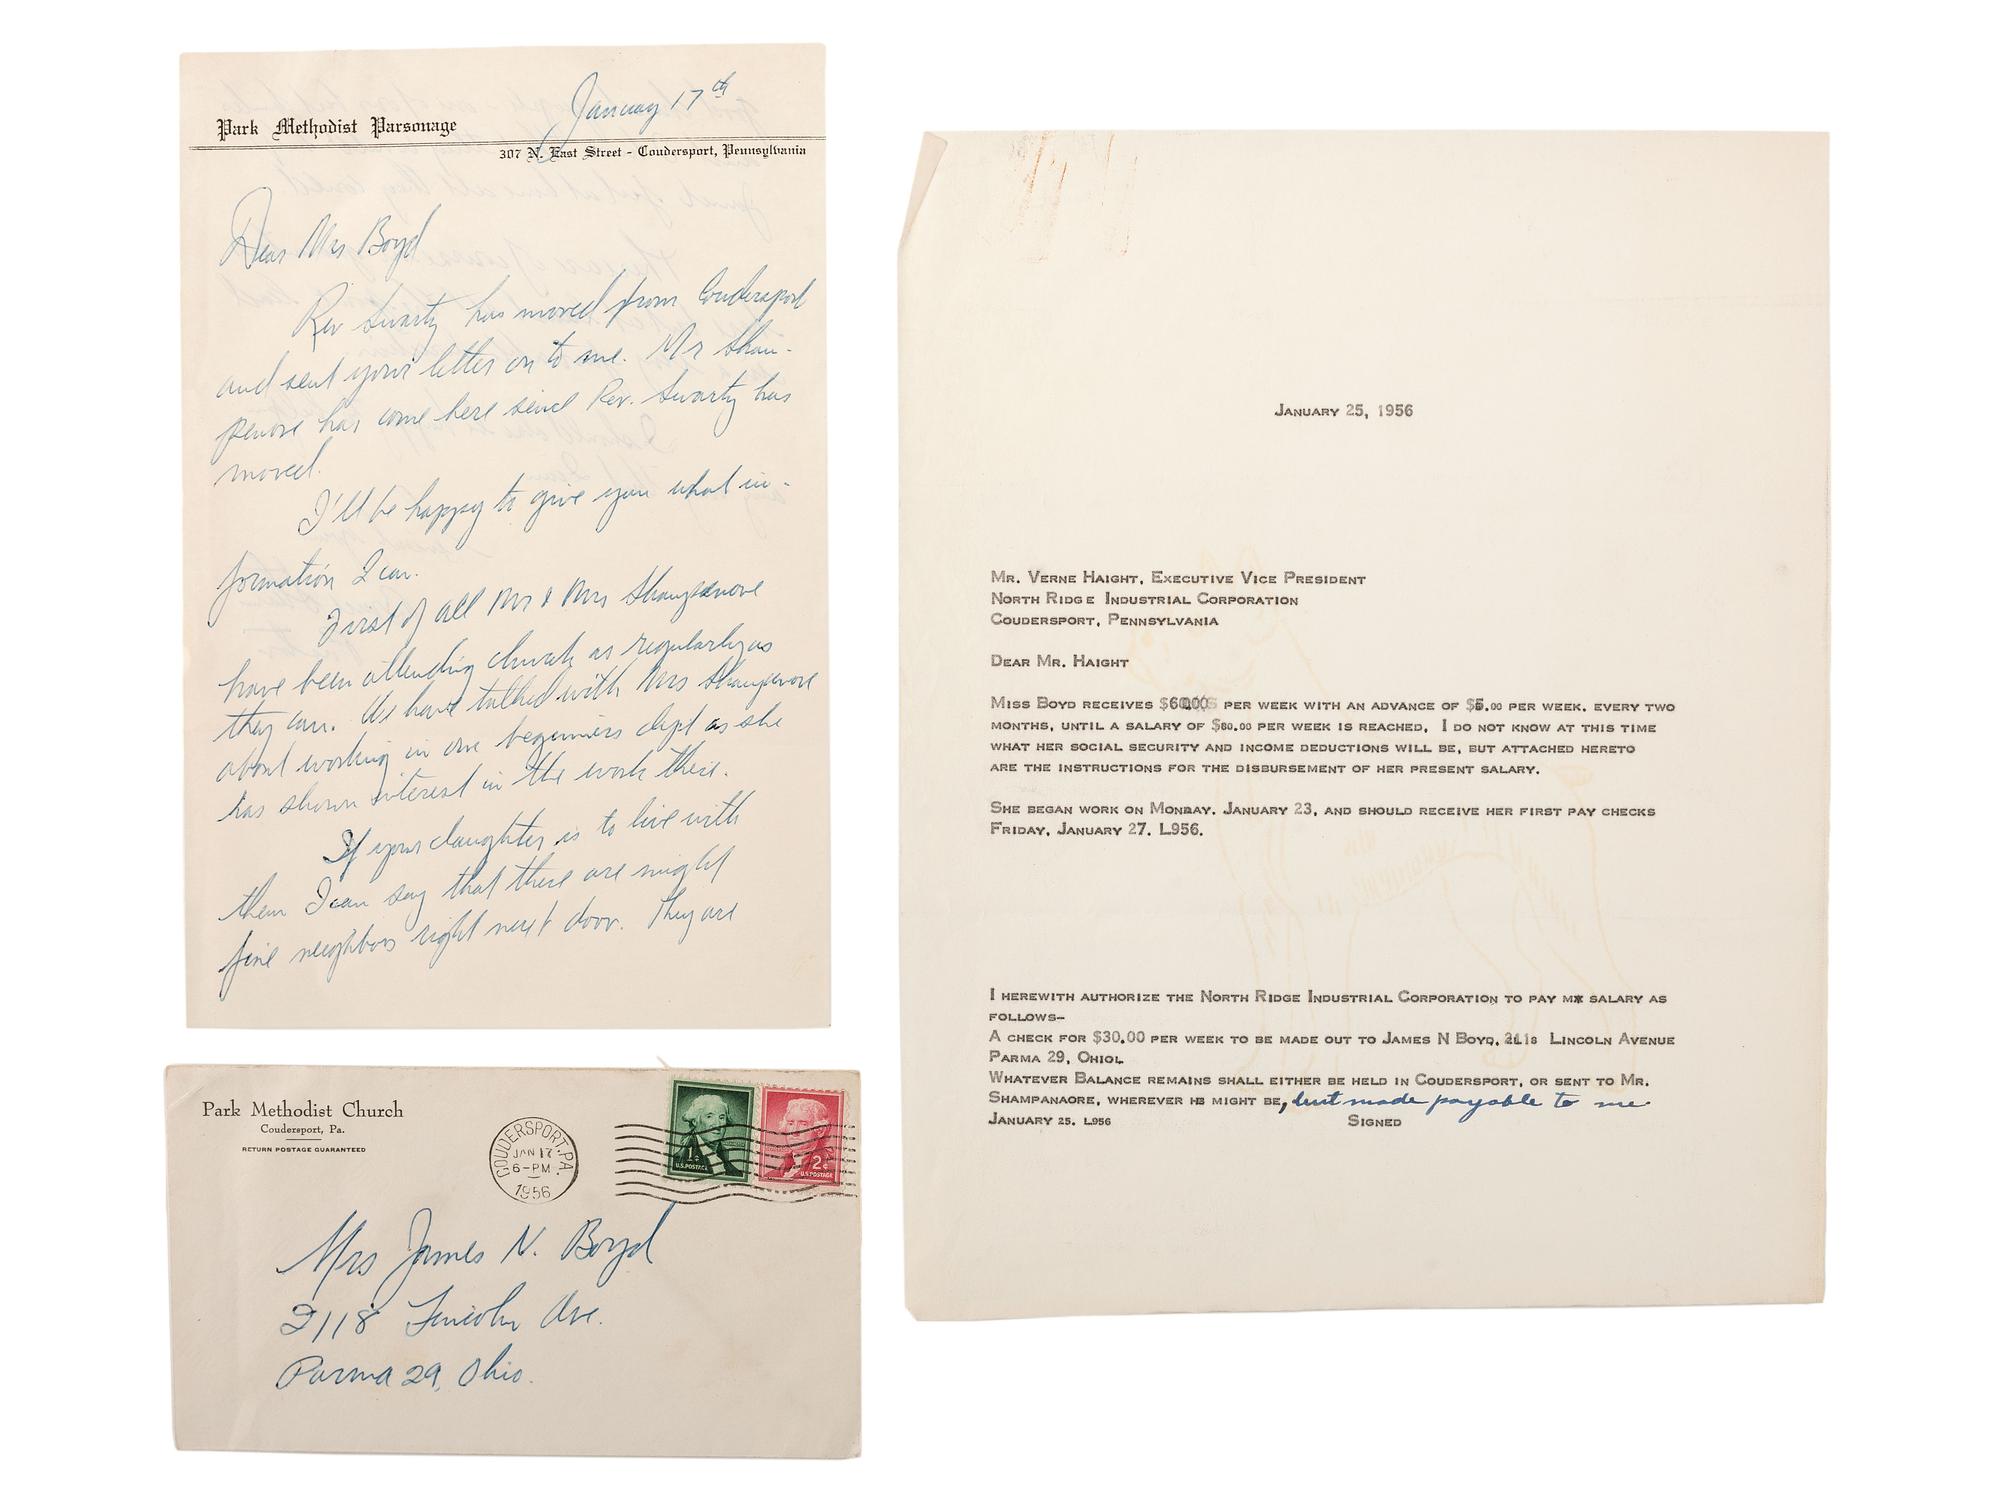 January 17th
Park Methodist Parsonage
307 N. East Street - Coudersport, Pennsylvania
Dear Mrs Boyd
Rev Swartz has moved from Coudersport
and sent your letter on to me. Mr Sham-
penore has come here since Rev. Swartz has
moved.
I'll be happy to give you what in-
formation I can.
First of all Mr & Mrs Shampenore
have been attending church as regularly as
they can. We have talked with Mrs Shampenore
about working in our beginners dept as she
has shown interest in the work there.
If your daughter is to live with
them I can say that these are might
fine neighbors right next door. They are
Park Methodist Church
Coudersport, Pa.
RETURN POSTAGE GUARANTEED
COUDERSPORT, PA.
JAN 17
6-PM
1956
1¢
U.S. POSTAGE
2¢
U.S. POSTAGE
Mrs James N. Boyd
2118 Lincoln Ave.
Parma 29, Ohio.
January 25, 1956
Mr. Verne Haight, Executive Vice President
North Ridge Industrial Corporation
Coudersport, Pennsylvania
Dear Mr. Haight
Miss Boyd receives $60.00 per week with an advance of $5.00 per week, every two
months, until a salary of $80.00 per week is reached. I do not know at this time
what her social security and income deductions will be, but attached hereto
are the instructions for the disbursement of her present salary.
She began work on Monday, January 23, and should receive her first pay checks
Friday, January 27. L956.
I herewith authorize the North Ridge Industrial Corporation to pay my salary as
follows-
A check for $30.00 per week to be made out to James N Boyd, 2118 Lincoln Avenue
Parma 29, Ohio.
Whatever Balance remains shall either be held in Coudersport, or sent to Mr.
Shampanaore, wherever he might be, but made payable to me
January 25. L956 Signed